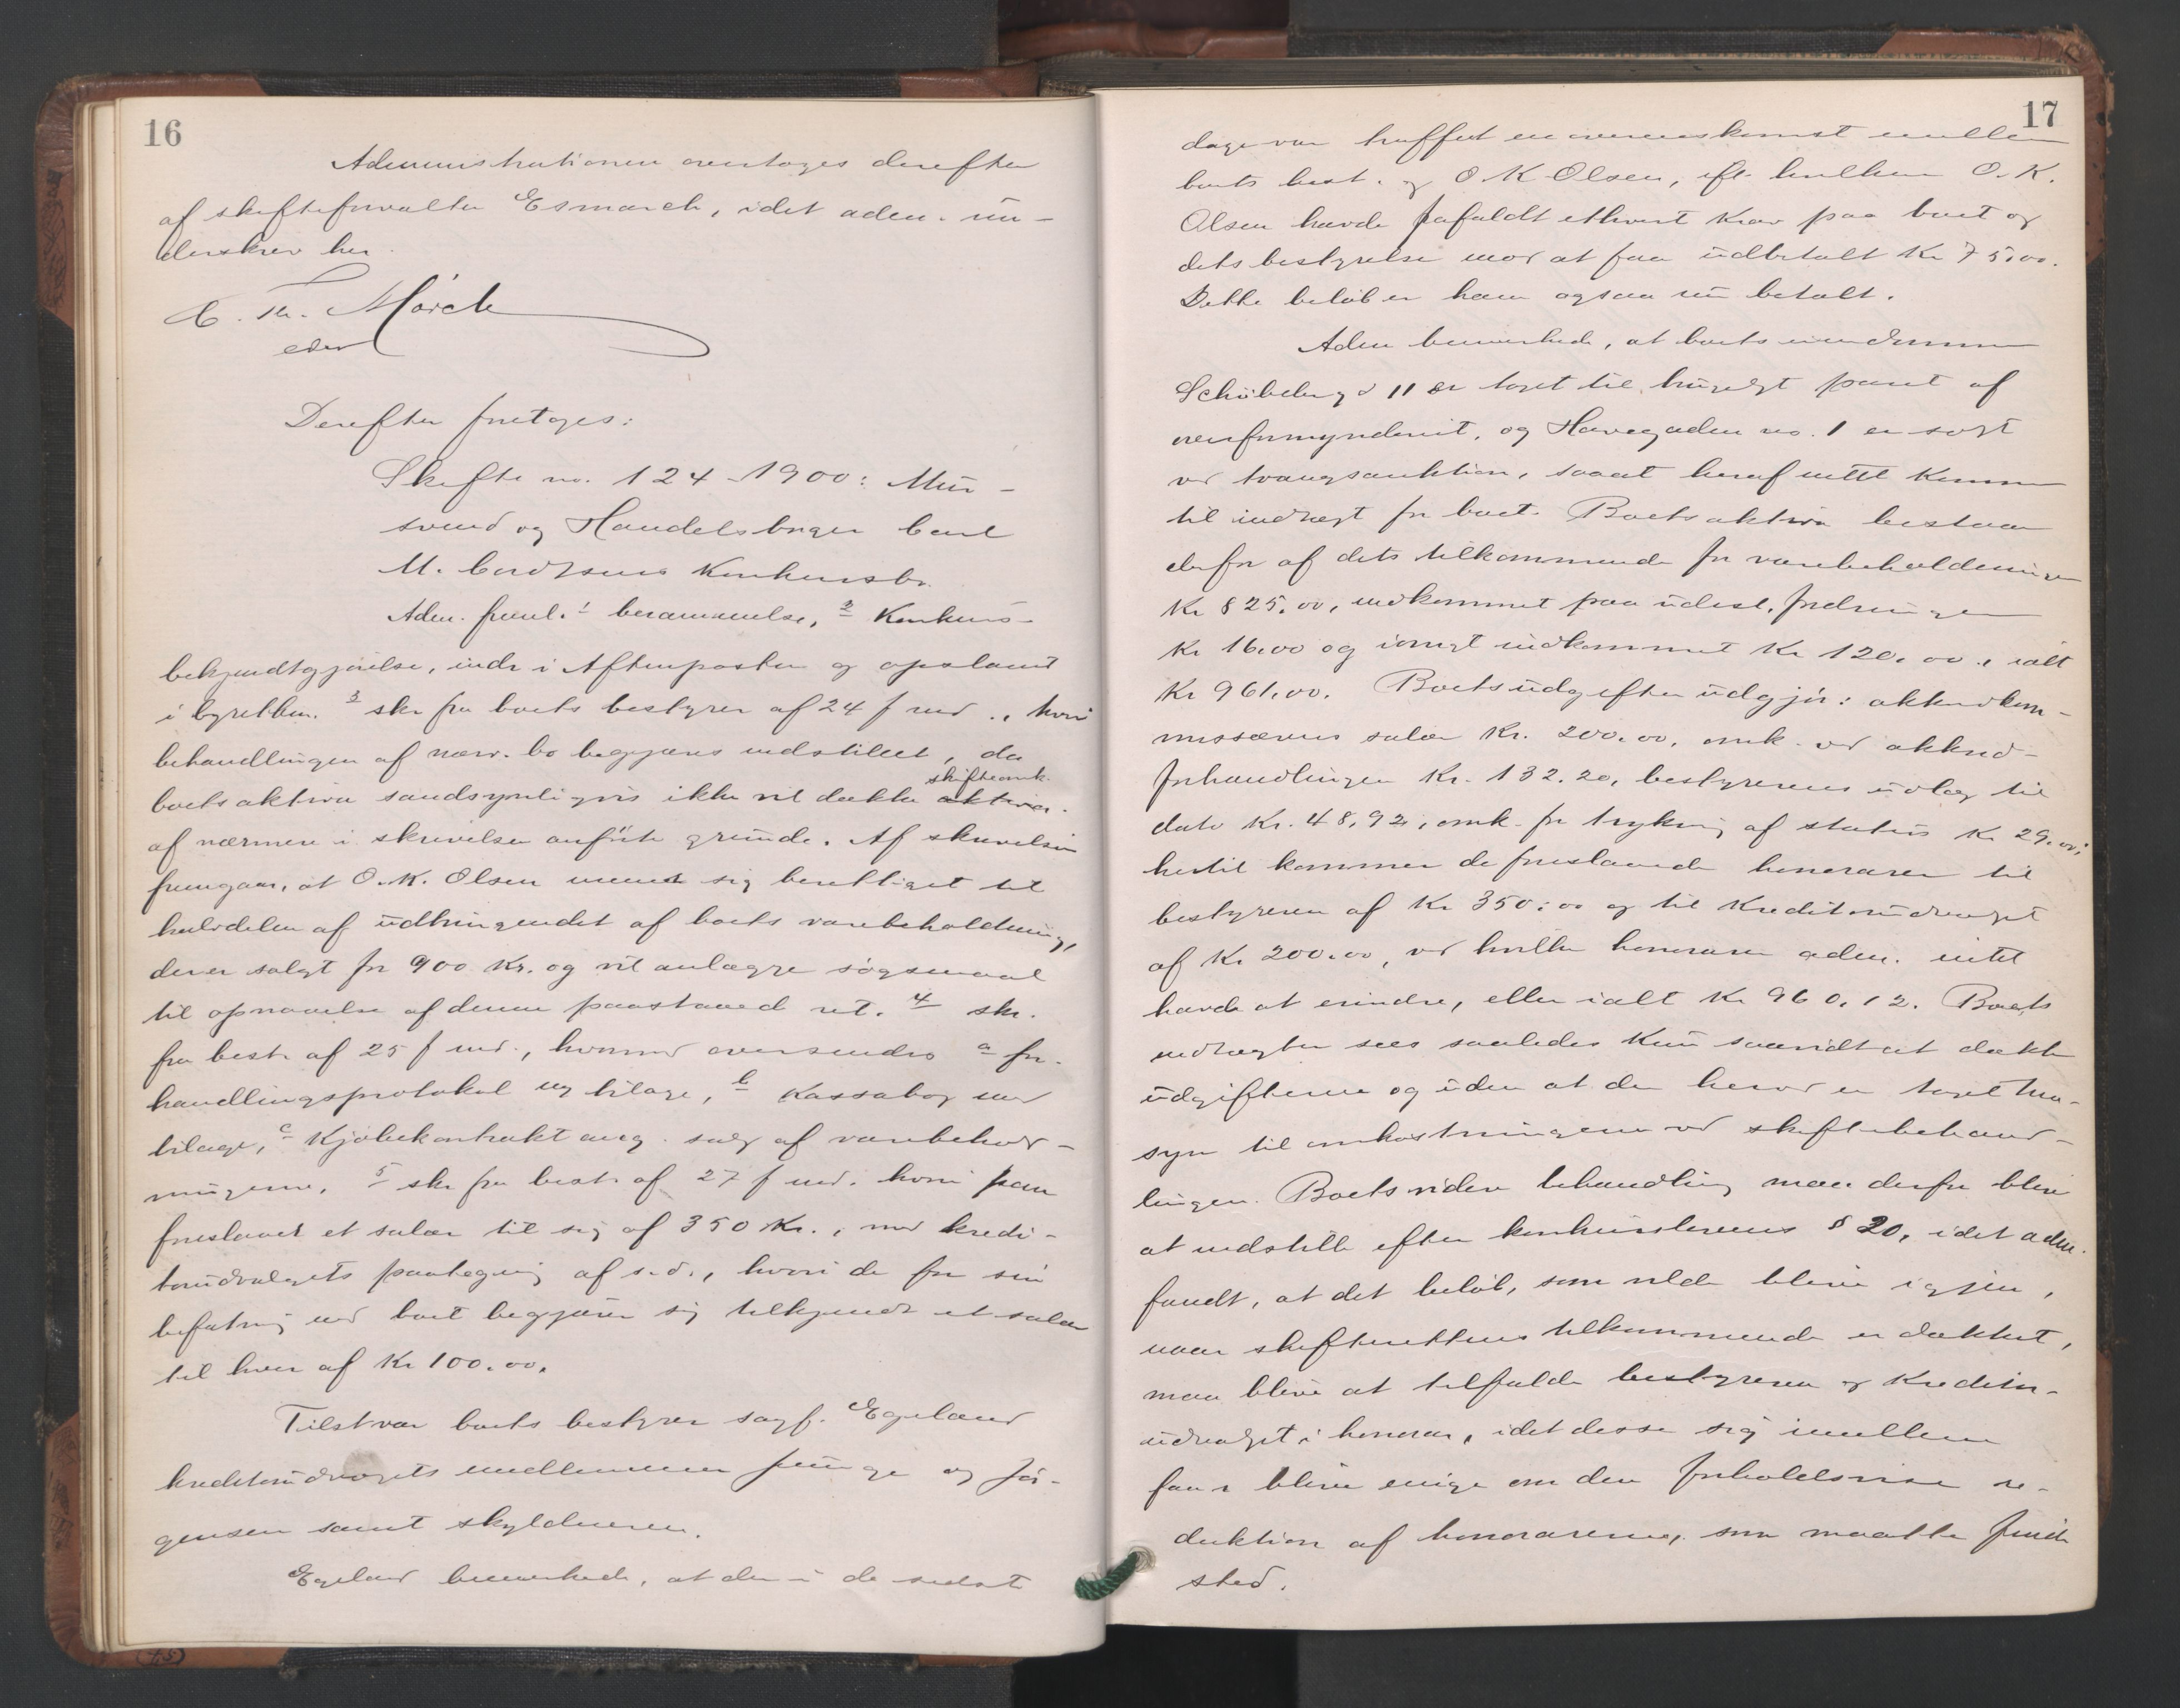 16
Administrationen overtoges derefter
af skifteforvalter Esmarch, idet adm. un-
derskrev her.
C. Th. Mörch
edsv
Derefter foretoges:
Skifte no. 124-1900: Mur-
svend og Handelsborger Carl
M. Carlsens Konkursbo.
Adm. freml. 1 berammelse, 2 Konkurs-
bekjendtgjörelse, indr. i Aftenposten og opslaaet
i byretten. 3 skr fra boets bestyrer af 24 f. md., hvori
behandlingen af nærv. bo begjæres indstillet, da
boets aktiva sandsynligvis ikke vil dække skifteomk.
af nærmere i skrivelsen anförte grunde. Af skrivelsen
fremgaar, at O. K. Olsen mener sig berettiget til
halvdelen af udbringendet af boets varebeholdning,
der er solgt for 900 Kr. og vil anlægge sögsmaal
til opnaaelse af denne paastaaed ret. 4 skr.
fra best. af 25 f. md., hvormed oversendes a for-
handlingsprotokol og bilage, b Kassabog med
bilage, c Kjöbekontrakt ang. salg af varebehold-
ningerne. 5 skr fra best. af 27 f. md. hvori han
foreslaaet et salær til sig af 350 Kr., med kredi-
torudvalgets paategning af s. d., hvori de for sin
befatning med boet begjærer sig tilkjendt et salær
til hver af Kr 100.00.
Tilst. var boets bestyrer sagf. Egeland
kreditorudvalgets medlemmer Junge og Jör-
gensen samt skyldneren.
Egeland bemerkede, at der i de sidst
17
dage var truffet en overenskomst mellem
boets best. og O K Olsen, eft. hvilken O. K.
Olsen havde frafaldt ethvert Krav paa boet og
dets bestyrelse mod at faa udbetalt Kr 75.00.
Dette belöb er ham ogsaa nu betalt.
Adm bemerkede, at boets eiendomme
Schübelersgd 11 er taget til brugeligt pant af
overformynderiet, og Havegaden no. 1 er solgt
ved tvangsauktion, saaat heraf intet kommer
til indtægt for boet. Boets aktiva bestaar
derfor af dets tilkommende for varebeholdningen
Kr 825.00, indkommet paa udest. fordringer
Kr 16.00 og iövrigt indkommet Kr 120.00, ialt
Kr 961.00. Boets udgifter udgjör: akkordkom-
missærens salær Kr. 200.00, omk. ved akkord-
forhandlingen Kr. 132.20, bestyrerens udlæg til
dato Kr. 48,92, omk. for trykning af status Kr 29.00;
hertil kommer de foreslaaede honorarer til
bestyreren af Kr 350.00 og til Kreditorudvalget
af Kr 200.00, ved hvilke honorarer adm. intet
havde at erindre, eller ialt Kr 960.12. Boets
indtægter sees saaledes kun saavidt at dække
udgifterne og uden at der herved er taget hen-
syn til omkostningerne ved skiftebehand-
lingen. Boets videre behandling maa derfor blive
at indstille efter konkurslovens § 20, idet adm.
fandt, at det belöb, som vilde blive igjen,
naar skifterettens tilkommende er dækket,
maa blive at tilfalde bestyreren og Kreditor-
udvalget i honorar, idet disse sig imellem
faar blive enige om den forholdsvise re-
duktion af honorarerne, som maatte finde
sted.